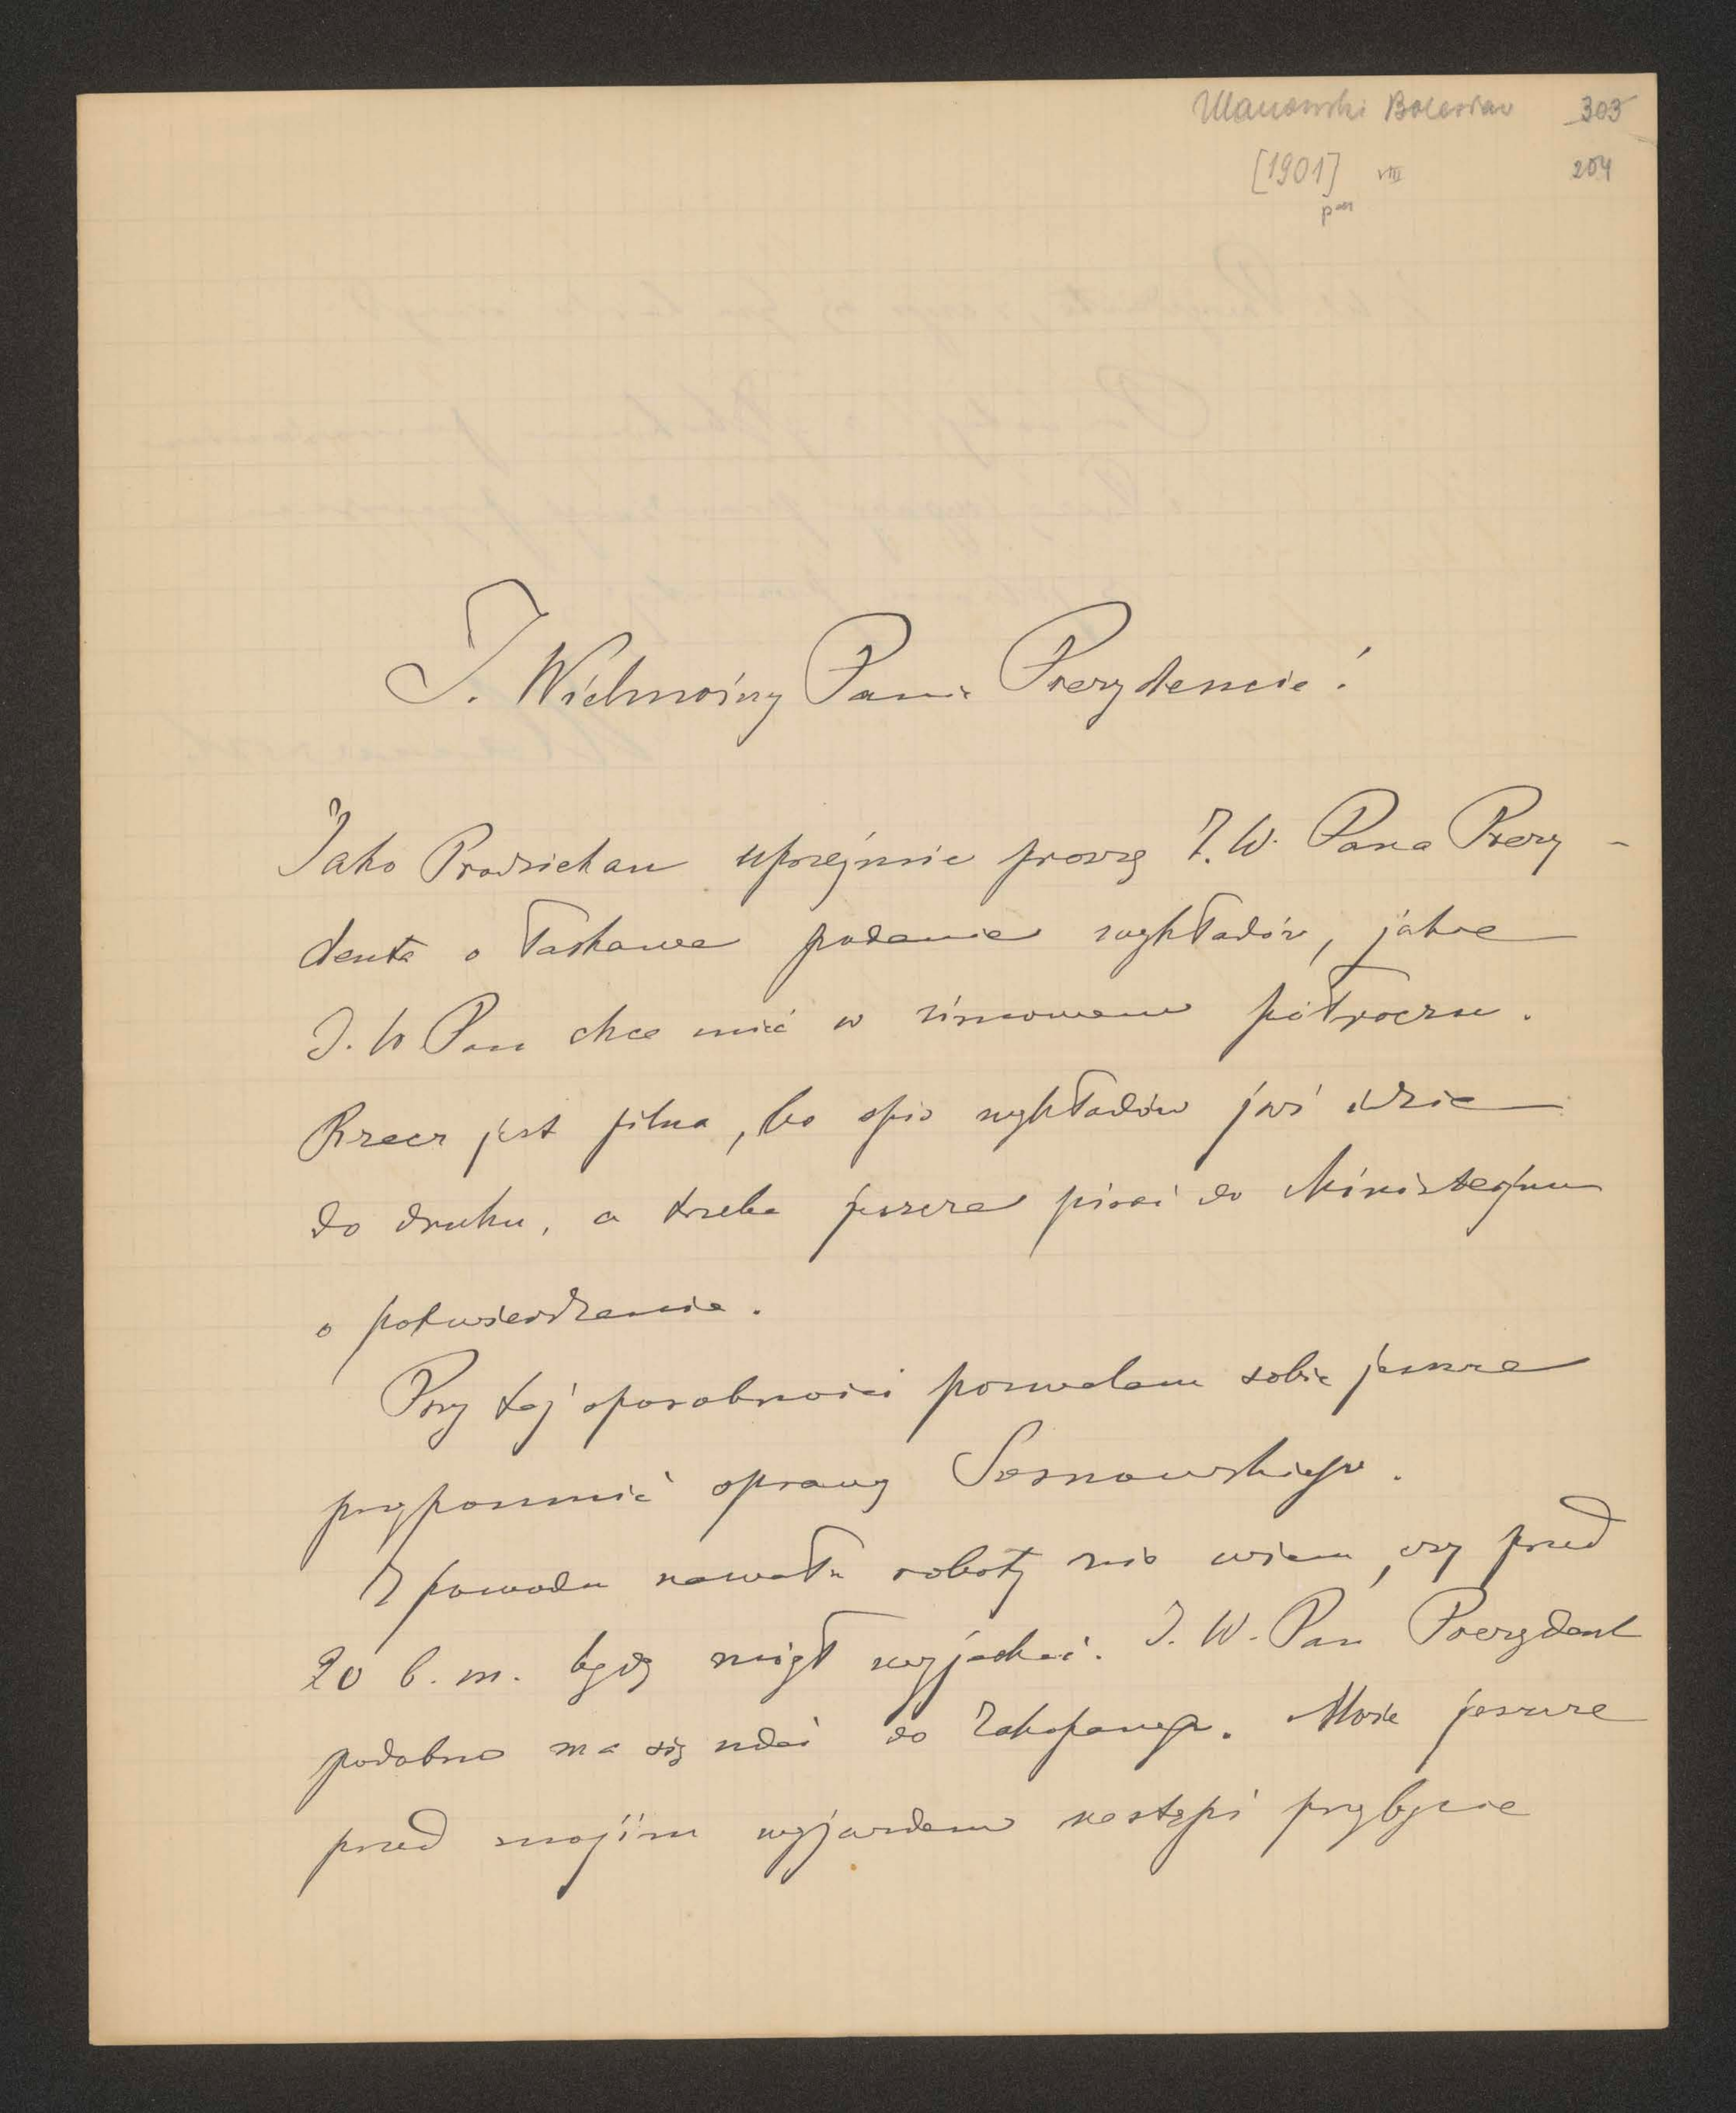 Ulanowski Bolesław 303
[1901] VIII 204
J. Wielmożny Panie Prezydencie!
Jako Prodziekan uprzejmie proszę J. W. Pana Prezy-
denta o łaskawe podanie wykładów, jakie
J. W Pan chce mieć w zimowem półroczu.
Rzecz jest pilna, bo spis wykładów już idzie
do druku, a trzeba jeszcze pisać do Ministerjum
o potwierdzenie.
Przy tej sposobności pozwalam sobie jeszcze
przypomnieć sprawę Sosnowskiego.
Z powodu nawału roboty nie wiem, czy przed
20 b. m. będę mógł wyjechać. J. W. Pan Prezydent
podobno ma się udać do Zakopanego. Może jeszcze
przed mojím wyjazdem nastąpi przybycie